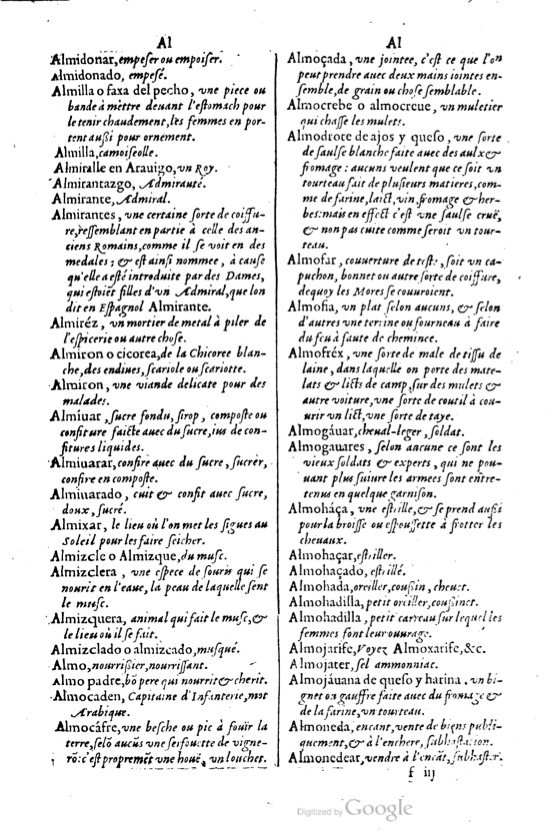 Al
Almidonar, empeſer ou empoiſer.
Almidonado, empeſé.
Almilla o faxa del pecho, vne piece ou
bande à mettre deuant l'eſtomach pour
le tenir chaudement, les femmes en por-
tent außi pour ornement.
Almilla, camoiſolle.
Almiralle en Arauigo, vn Roy.
Almirantazgo, Admirauté.
Almirante, Admiral.
Almirantes, vne certaine ſorte de coiffu-
re, reſſemblant en partie à celle des an-
ciens Romains, comme il ſe voit en des
medales; & eſt ainſi nommee, à cauſe
qu'elle a eſté introduite par des Dames,
qui eſtoiẽt filles d'vn Admiral, que lon
dit en Eſpagnol Almirante.
Almiréz, vn mortier de metal à piler de
l'eſpicerie ou autre choſe.
Almiron o cicorea, de la Chicoree blan-
che, des endiues, ſcariole ou ſcariotte.
Almiron, vne viande delicate pour des
malades.
Almíuar, ſucre fondu, ſirop, compoſte ou
confiture faicte auec du ſucre, ius de con-
fitures liquides.
Almiuarar, confire auec du ſucre, ſucrer,
confire en compoſte.
Almiuarado, cuit & confit auec ſucre,
doux, ſucré.
Almixar, le lieu où l'on met les figues au
Soleil pour les faire ſeicher.
Almizcle o Almizque, du muſc.
Almizclera, vne eſpece de ſouris qui ſe
nourit en l'eaue, la peau de laquelle ſent
le muſc.
Almizquera, animal qui fait le muſc, &
le lieu où il ſe fait.
Almizclado o almizcado, muſqué.
Almo, nourrißier, nourriſſant.
Almo padre, bõ pere qui nourrit & cherit.
Almocaden, Capitaine d'Infanterie, mot
Arabique.
Almocáfre, vne beſche ou pic à fouir la
terre, ſelõ aucũs vne ſerfouette de vigne-
rõ: c'eſt propremẽt vne houë, vn louchet.
Al
Almoçada, vne jointee, c'eſt ce que l'on
peut prendre auec deux mains iointes en-
ſemble, de grain ou choſe ſemblable.
Almocrebe o almocreue, vn muletier
qui chaſſe les mulets.
Almodrote de ajos y queſo, vne ſorte
de ſaulſe blanche faite auec des aulx &
fromage: aucuns veulent que ce ſoit vn
tourteau fait de pluſieurs matieres, com-
me de farine, laict, vin, fromage & her-
bes: mais en effect c'eſt vne ſaulſe cruë,
& non pas cuite comme ſeroit vn tour-
teau.
Almofar, couuerture de teſte, ſoit vn ca-
puchon, bonnet ou autre ſorte de coiffure,
dequoy les Mores ſe couuroient.
Almofia, vn plat ſelon aucuns, & ſelon
d'autres vne terrine ou fourneau à faire
du feu à faute de cheminee.
Almofréx, vne ſorte de male de tiſſu de
laine, dans laquelle on porte des mate-
lats & licts de camp, ſur des mulets &
autre voiture, vne ſorte de coutil à cou-
urir vn lict, vne ſorte de taye.
Almogáuar, cheual-leger, ſoldat.
Almogauares, ſelon aucuns ce ſont les
vieux ſoldats & experts, qui ne pou-
uant plus ſuiure les armees ſont entre-
tenus en quelque garniſon.
Almoháça, vne eſtrille, & ſe prend außi
pour la broiſſe ou eſpouſſette à frotter les
cheuaux.
Almohaçar, eſtriller.
Almohaçado, eſtrillé.
Almohada, oreiller, coußin, cheuet.
Almohadilla, petit oreiller, coußinet.
Almohadilla, petit carreau ſur lequel les
femmes font leur ouurage.
Almojarife, Voyez Almoxarife, &c.
Almojater, ſel ammoniac.
Almojáuana de queſo y harina, vn bi-
gnet ou gauffre faite auec du fromage &
de la farine, vn tourteau.
Almoneda, encant, vente de biens publi-
quement, & à l'enchere, ſubhaſtation.
Almonedear, vendre à l'encãt, ſubhaſter.
f iij
Digitized by Google